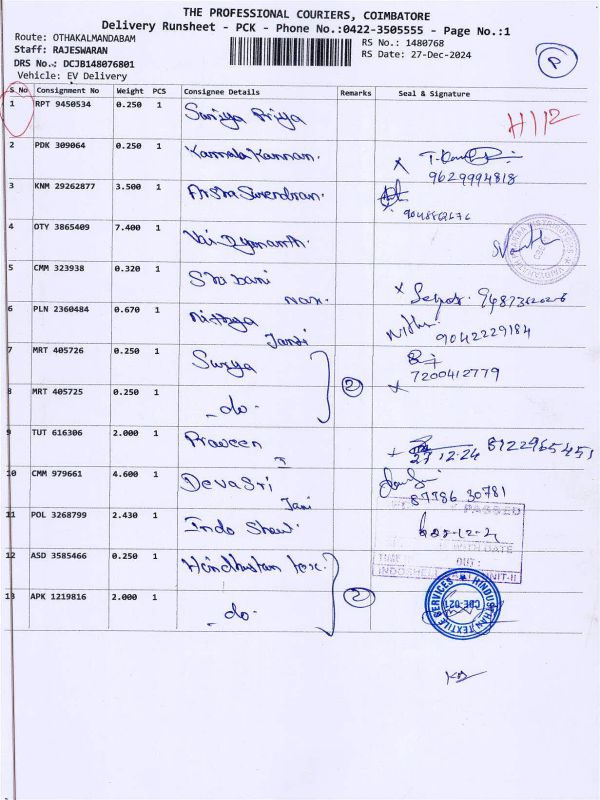 THE PROFESSIONAL COURIERS, COIMBATORE
Delivery Runsheet - PCK - Phone No.:0422-3505555 - Page No.:1
Route: OTHAKALMANDABAM
Staff: RAJESWARAN
DRS No.: DCJB148076801
Vehicle: EV Delivery
RS No.: 1480768
RS Date: 27-Dec-2024
P
S No Consignment No Weight PCS Consignee Details Remarks Seal & Signature
1 RPT 9450534 0.250 1 Suriya Priya
2 PDK 309064 0.250 1 Kamala Kannan. 9629994818
3 KNM 29262877 3.500 1 Arsha Surendran.
4 OTY 3865409 7.400 1
5 CMM 323938 0.320 1
6 PLN 2360484 0.670 1 Nithya 9042229184
7 MRT 405726 0.250 1 Surya 2 7200412779
8 MRT 405725 0.250 1 - do -
9 TUT 616306 2.000 1 Praveen 27.12.24
10 CMM 979661 4.600 1 Deva Sri 87786 30781
11 POL 3268799 2.430 1 Indo Shell
12 ASD 3585466 0.250 1 Hindhustan Tex. 2
13 APK 1219816 2.000 1 - do -
PASSED
WITH DATE
OUT :
HINDUSTHAN TEXTILE SERVICES
CBE-021